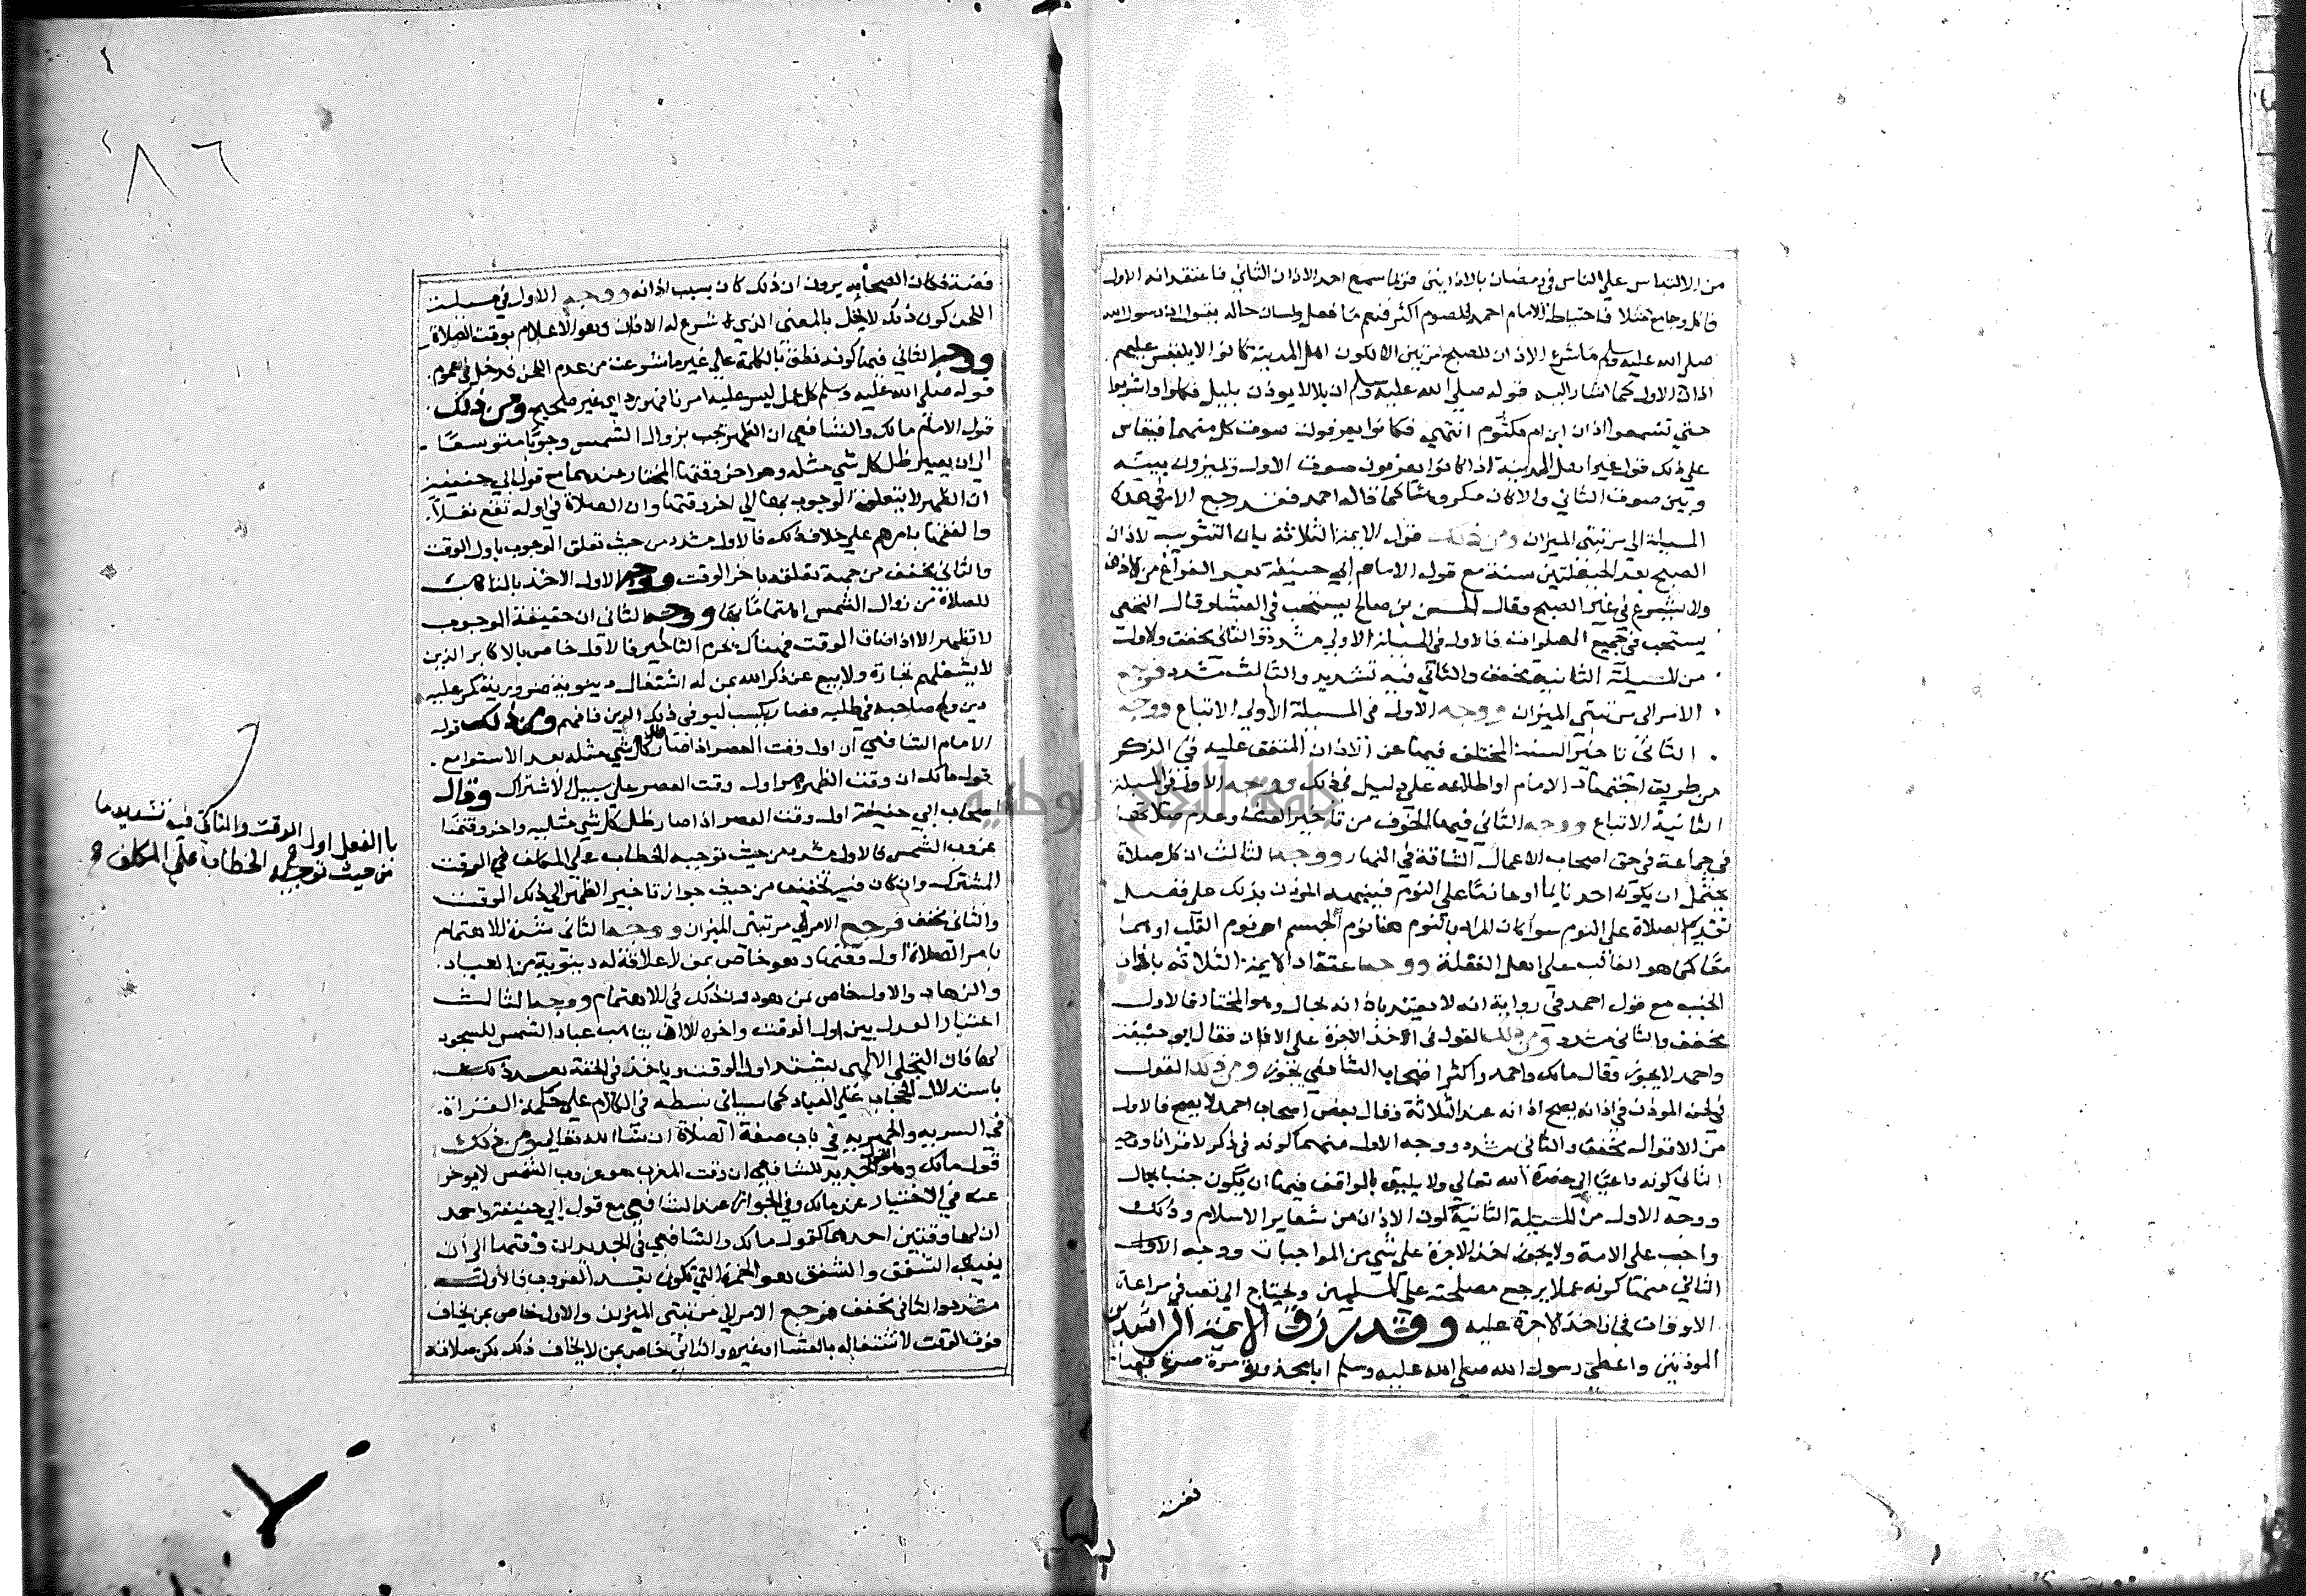 من الالتباس علي الناس في رمضان بالاذانين فربما سمع احد الاذان الثاني فاعتقد انه الاول
فاكل وجامع مثلا فاحتياط الامام احمد للصوم اكثر فنعم ما فعل ولسان حاله يقول ان رسول الله
صلي الله عليه وسلم ما شرع الاذان للصبح مرتين الا لكون اهل المدينة كانوا لا يلتبس عليهم
اذان الاول كما اشار اليه قوله صلي الله عليه وسلم ان بلالا يوذن بليل فكلوا واشربوا
حتي تسمعوا اذان ابن ام مكتوم انتهي فكانوا يعرفون صوت كل منهما فيقاس
علي ذلك قول غير اهل المدينة اذا كانوا يعرفون صوت الاول ويميزون بينه
وبين صوت الثاني والا كان مكروها كما قاله احمد فقد رجع الامر في هذه
المسيلة الي مرتبتي الميزان ومن ذلك قول الايمة الثلاثة بان التثويب لاذان
الصبح بعد الحيعلتين سنة مع قول الامام ابي حنيفة بعد الفراغ من الاذان
ولا يشرع في غير الصبح وقال الحسن بن صالح يستحب في العشا وقال النخعي
يستحب في جميع الصلوات فالاول في المسيلة الاولي مشدد والثاني مخفف والاول
من المسيلة الثانية مخفف والثاني فيه تشديد والثالث مشدد فرجع
الامر الي مرتبتي الميزان ووجه الاول في المسيلة الاولي الاتباع ووجه
الثاني تاخير السنة المختلف فيها عن الاذان المتفق عليه في الذكر
من طريق اجتهاد الامام او اطلاعه علي دليل في ذلك ووجه الاول في المسيلة
الثانية الاتباع ووجه الثاني فيها الخوف من تاخير العشا وعدم صلاتها
في جماعة في حق اصحاب الاعمال الشاقة في النهار ووجه الثالث ان كل صلاة
يحتمل ان يكون احد نايما او هانما علي النوم فينبهه الموذن بذلك علي فضل
تقديم الصلاة علي النوم سوا كان المراد بالنوم هنا نوم الجسم ام نوم القلب او هما
معا كما هو الغالب علي اهل الغفلة ووجه اعتقاد الايمة الثلاثة باذان
الجنب مع قول احمد في رواية انه لا يعتد باذانه بحال وهو المختار فالاول
مخفف والثاني مشدد ومن ذلك القول في اخذ الاجرة علي الاذان فقال ابو حنيفة
واحمد لا يجوز وقال مالك واحمد واكثر اصحاب الشافعي يجوز ومن ذلك القول
في لحن الموذن في اذانه يصح اذانه عند الثلاثة وقال بعض اصحاب احمد لا يصح فالاول
من الاقوال مخفف والثاني مشدد ووجه الاول منهما كونه في ذكر لا قرانا ووجه
الثاني كونه داعيا الي حضرة الله تعالي ولا يليق بالواقف فيها ان يكون جنبا بحال
ووجه الاول من المسيلة الثانية كون الاذان من شعاير الاسلام وذلك
واجب علي الامة ولا يجوز اخذ الاجرة علي شي من الواجبات ووجه الاول
الثاني منهما كونه عملا يرجع مصلحته علي المسلمين ويحتاج الي تعب في مراعاة
الاوقات فجاز اخذ الاجرة عليه وقد رزق الايمة الراشدين
الموذنين واعطي رسول الله صلي الله عليه وسلم ابا محذورة مرة صرة فيها
فضة
فضة فكان الصحابه يرون ان ذلك كان بسبب اذانه ووجه الاول في مسيلة
اللحن كون ذلك لا يخل بالمعني الذي شرع له الاذان وهو الاعلام بوقت الصلاة
ووجه الثاني فيها كونه نطق بالكلمة علي غير ما شرعت من عدم اللحن فدخل في عموم
قوله صلي الله عليه وسلم كل عمل ليس عليه امرنا فهو رد اي غير صحيح ومن ذلك
قول الامام مالك والشافعي ان الظهر تجب بزوال الشمس وجوبا متوسعا
الي ان يصير ظل كل شي مثله وهو اخر وقتها المختار عندهما مع قول ابي حنيفة
ان الظهر لا يتعلق الوجوب بها الي اخر وقتها وان الصلاة في اوله تقع نفلا
والفقها باسرهم علي خلاف ذلك فالاول مشدد من حيث تعلق الوجوب باول الوقت
والثاني مخفف من جهة تعلقه باخر الوقت ووجه الاول الاخذ بالتاهب
للصلاة من زوال الشمس اهتماما بها ووجه الثاني ان حقيقة الوجوب
لا تظهر الا اذا ضاق الوقت فهناك يحرم التاخير فالاول خاص بالاكابر الذين
لا يشغلهم تجارة ولا بيع عن ذكر الله بمن له اشتغال دنيوية ضرورية كمن عليه
دين وله صاحبه في طلبه فصار يكتسب ليوفي ذلك الدين فافهم ومن ذلك قول
الامام الشافعي ان اول وقت العصر اذا صار ظل كل شي مثله بعد الاستوا مع
قول مالك ان وقت الظهر هو اول وقت العصر علي سبيل الاشتراك وقال
اصحاب ابي حنيفة اول وقت العصر اذا صار ظل كل شي مثليه واخر وقتها
غروب الشمس فالاول مشدد من حيث توجيه الخطاب علي المكلف في الوقت
المشترك وان كان فيه تخفيف من حيث جواز تاخير الظهر الي ذلك الوقت
والثاني مخفف فرجع الامر الي مرتبتي الميزان ووجه الثاني شدة الاهتمام
بامر الصلاة اول وقتها وهو خاص بمن لا علاقة له دنيوية من العباد
والزهاد والاول خاص بمن هو دون ذلك في الاهتمام ووجه الثالث
اعتبار العدل بين اول الوقت واخره للتاهب عباد الشمس للسجود
لها فان التجلي الالهي يشتد اول الوقت وياخذ في الخفة بعد ذلك
باسدال الحجاب علي العباد كما سياتي بسطه في الكلام علي حكمة القراة
في السرية والجهرية في باب صفة الصلاة ان شا الله تعالي ومن ذلك
قول مالك وهو القول الجديد للشافعي ان وقت المغرب هو غروب الشمس لا يوخر
عنه في الاختيار عند مالك وفي الجواز عند الشافعي مع قول ابي حنيفة واحمد
ان لها وقتين احدهما كقول مالك والشافعي في الجديد ان وقتها الي ان
يغيب الشفق والشفق هو الحمرة التي تكون بعد الغروب فالاول
مشدد والثاني مخفف فرجع الامر الي مرتبتي الميزان والاول خاص بمن يخاف
فوت الوقت لاشتغاله بالعشا او غيره والثاني خاص بمن لا يخاف ذلك بكن صلاته
باالفعل اول الوقت والثاني فيه تشديد ما
من حيث توجيه الخطاب علي المكلف
٨٦
جامعة النجاح الوطنية